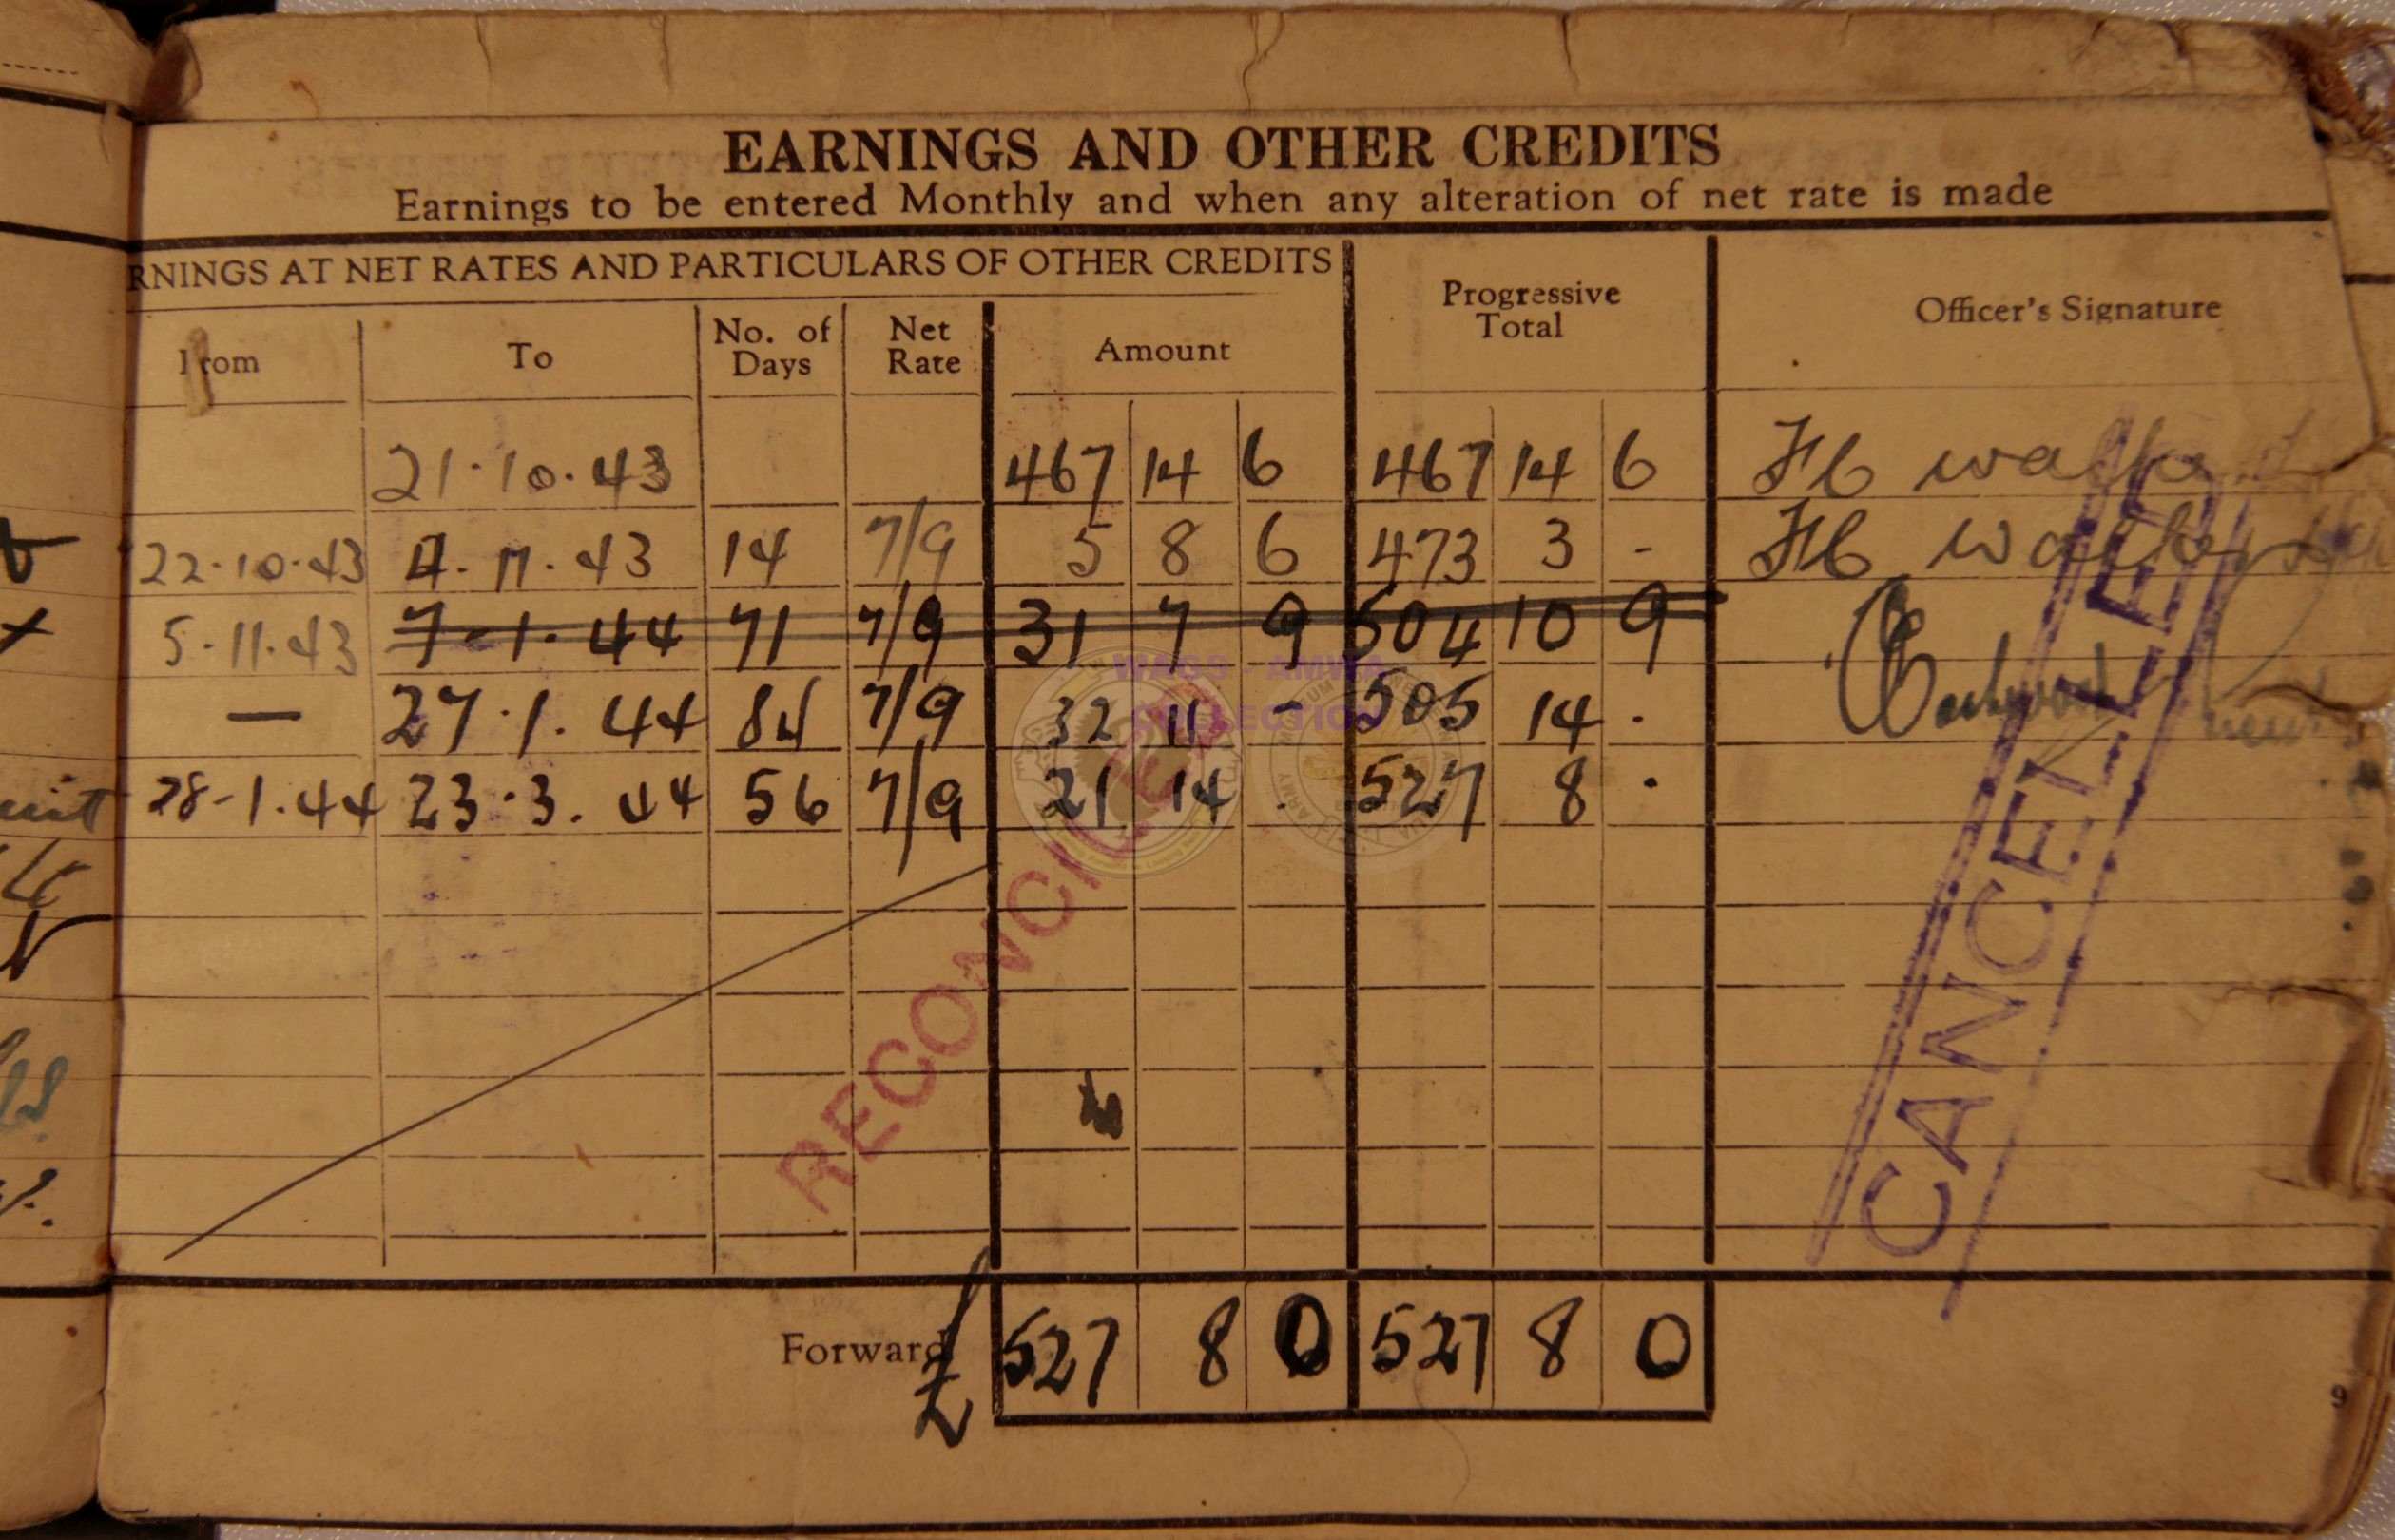 EARNINGS AND OTHER CREDITS
Earnings to be entered Monthly and when any alteration of net rate is made
RNINGS AT NET RATES AND PARTICULARS OF OTHER CREDITS
Progressive Total
Officer's Signature
From To No. of Days Net Rate Amount
21·10·43 467 14 6 467 14 6
22·10·43 4·11·43 14 7/9 5 8 6 473 3 -
5·11·43 7-1·44 71 7/9 31 7 9 504 10 9
— 27·1·44 84 7/9 32 11 - 505 14 ·
28-1·44 23·3·44 56 7/9 21 14 · 527 8 ·
WAGS - AMWA
COLLECTION
RECONCILED
CANCELLED
Forward £ 527 8 0 527 8 0
9